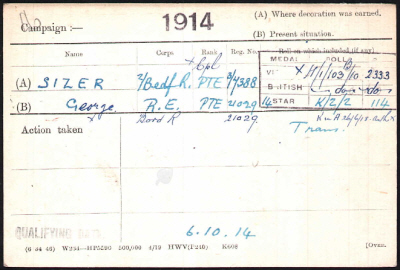 Campaign :— 1914 (A) Where decoration was earned.
(B) Present situation.
Name Corps Rank Reg. No. Roll on which included (if any)
MEDAL ROLL
x Cpl
(A) SIZER 2/Bedf R. PTE 3/7388 H/1/103 B10 2333
BRITISH do do
(B) George R.E. PTE 21029 14 STAR K/2/2 114
x Gord R 21029
Action taken
Trans.
QUALIFYING DATE 6.10.14
(6 34 46) W234—HP5590 500,000 4/19 HWV(P240) K608 [Over.